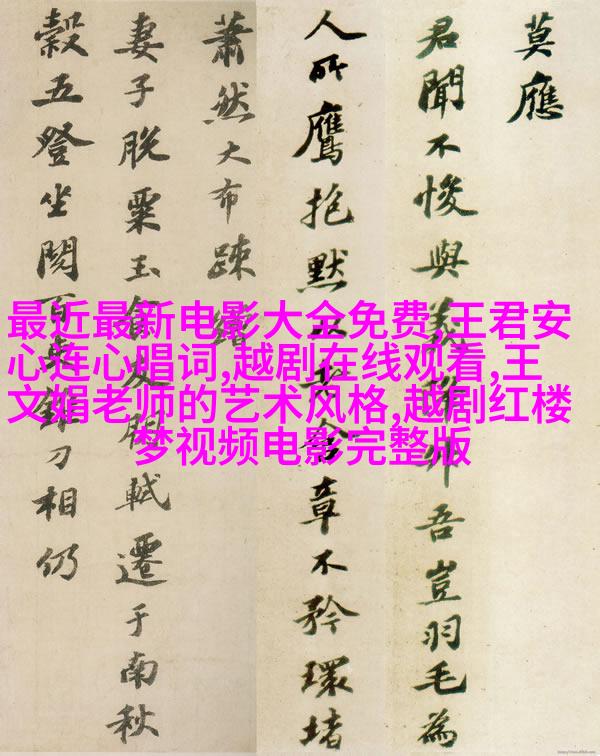 莫應
君聞不悛與義師吾豈羽毛為
人所鷹抱默含章不矜環堵
蕭然大布疎繒
妻子脫粟玉食友朋軾遷于南秋
穀五登坐閱百吏錐刀相仍
最近最新电影大全免费,王君安
心连心唱词,越剧在线观看,王
文娟老师的艺术风格,越剧红楼
梦视频电影完整版